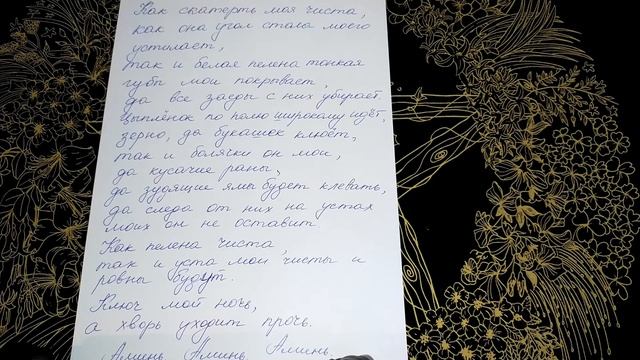 Как скатерть моя чиста,
как она угол стола моего
устилает,
так и белая пелена тонкая
губы мои покрывает,
да все заеды с них убирает.
Цыплёнок по полю широкому идёт,
зерно, да букашек клюёт,
так и болячки он мои,
да кусачие раны,
да зудящие ямы будет клевать,
да следа от них на устах
моих он не оставит.
Как пелена чиста,
так и уста мои чисты и
ровны будут.
Ключ мой ночь,
а хворь уходит прочь.
Аминь Аминь Аминь